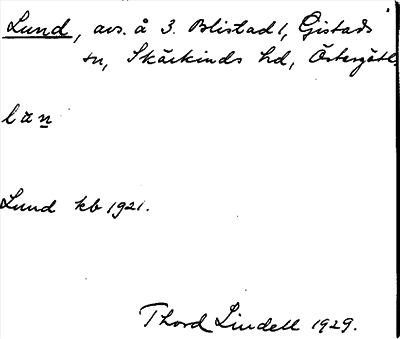 Lund, avs. å 3. Blistad 1, Gistads
sn, Skärkinds hd, Östergötl.
lan
Lund kb 1921.
Thord Lindell 1929.